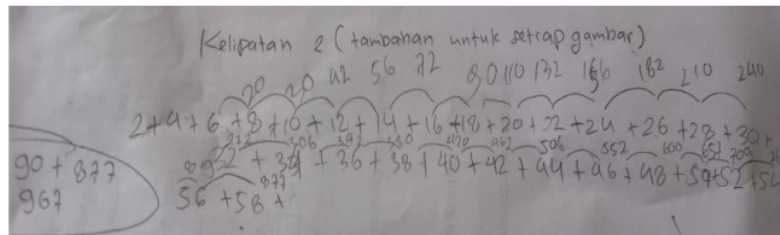 Kelipatan 2 (tambahan untuk setiap gambar)
20 42 56 72 90 110 132 156 182 210 240
2+4+6+8+10+12+14+16+18+20+22+24+26+28+30+
272 306 342 380 420 462 506 552 600 652 709
32+34+36+38+40+42+44+46+48+50+52+54
877
56+58+
90+877
967